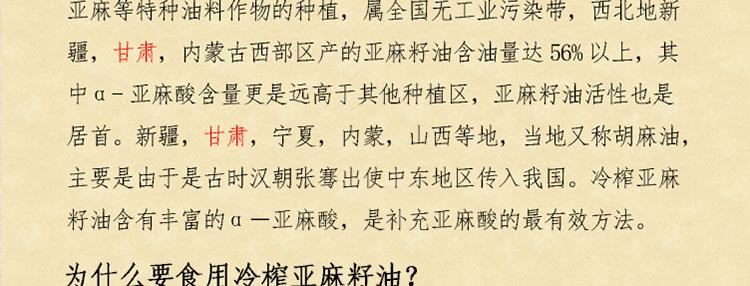 亚麻等特种油料作物的种植，属全国无工业污染带，西北地新
疆，甘肃，内蒙古西部区产的亚麻籽油含油量达 56% 以上，其
中α－亚麻酸含量更是远高于其他种植区，亚麻籽油活性也是
居首。新疆，甘肃，宁夏，内蒙，山西等地，当地又称胡麻油，
主要是由于是古时汉朝张骞出使中东地区传入我国。冷榨亚麻
籽油含有丰富的α－亚麻酸，是补充亚麻酸的最有效方法。
为什么要食用冷榨亚麻籽油？